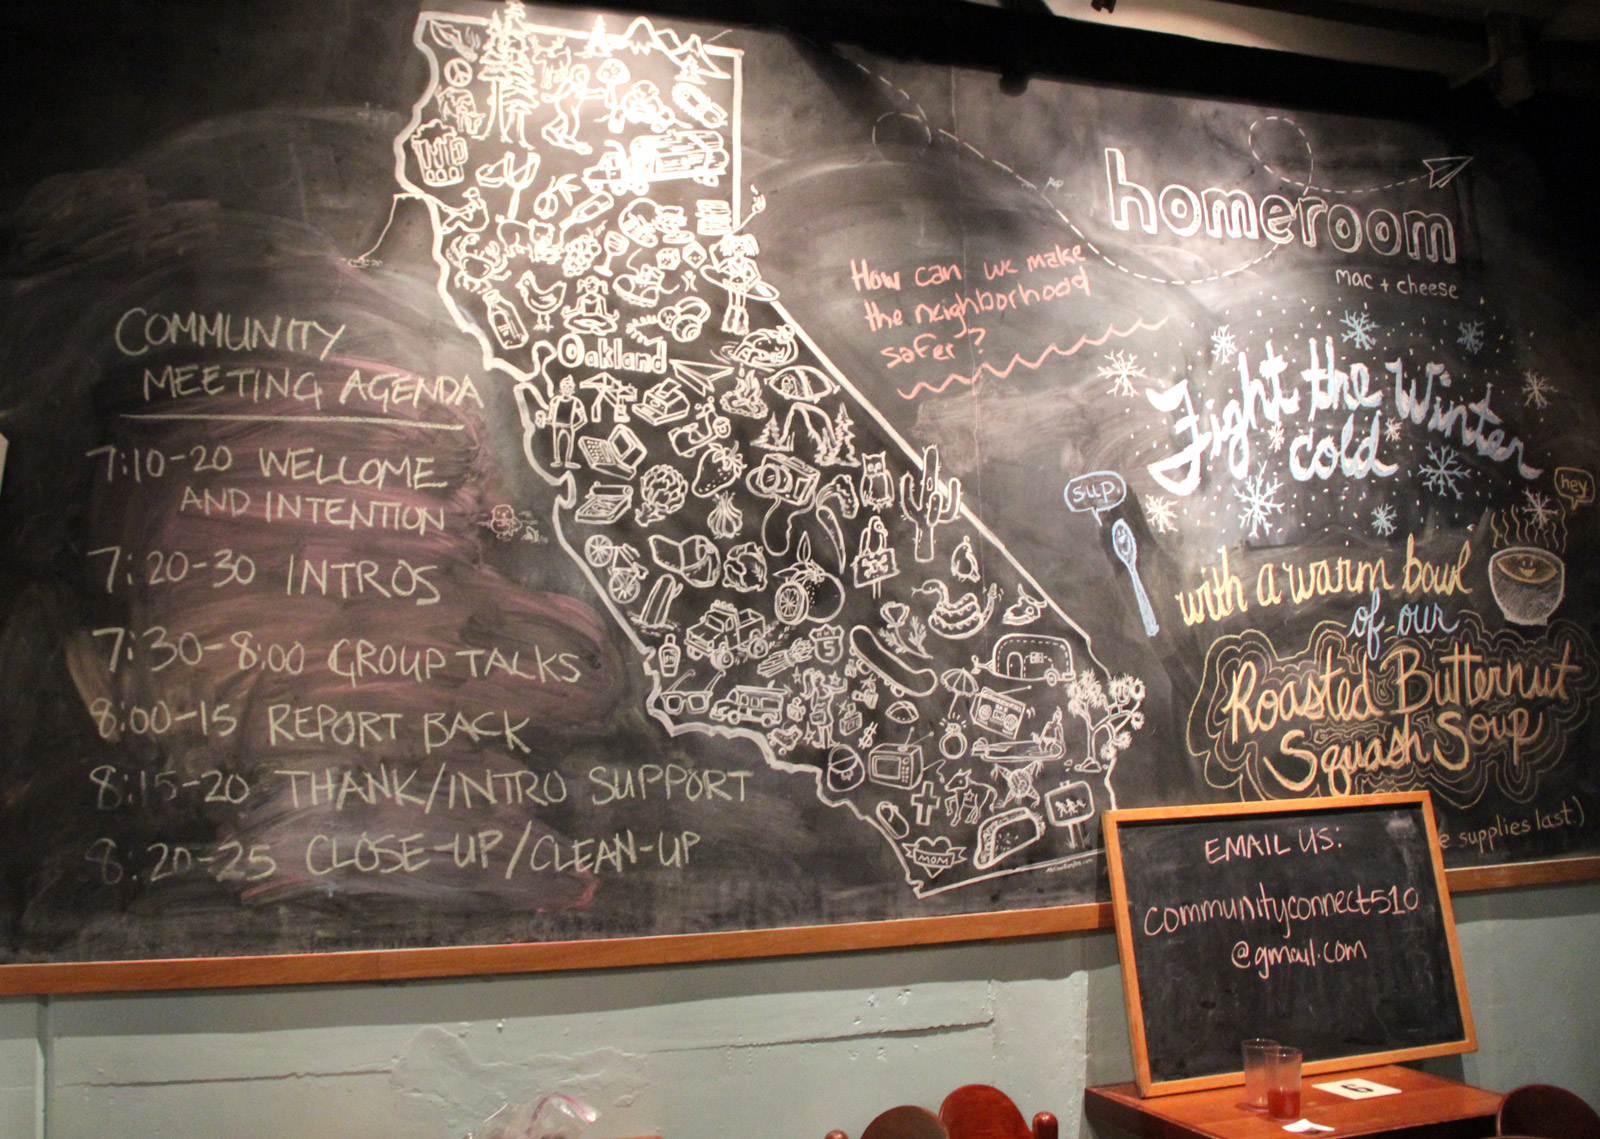 COMMUNITY
MEETING AGENDA
7:10-20 WELLOME
AND INTENTION
7:20-30 INTROS
7:30-8:00 GROUP TALKS
8:00-15 REPORT BACK
8:15-20 THANK/INTRO SUPPORT
8:20-25 CLOSE-UP/CLEAN-UP
Oakland
5
MOM
How can we make
the neighborhood
safer?
homeroom
mac + cheese
Fight the Winter
cold
sup.
hey
with a warm bowl
of our
Roasted Butternut
Squash Soup
e supplies last.)
EMAIL US:
communityconnect510
@gmail.com